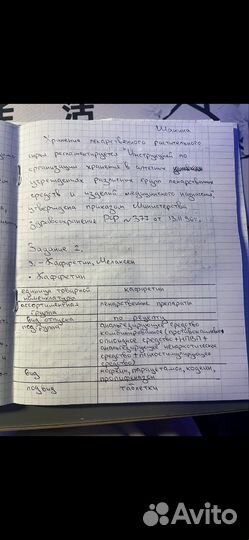 Шакина
Хранение лекарственного растительного
сырья регламентируется "Инструкцией по
организации хранения в аптечных
учреждениях различных групп лекарственных
средств и изделий медицинского назначения,
утверждена приказом Министерства
здравоохранения РФ №377 от 13.11.96г.
Задание 2.
3. - Каффетин, Мелаксен
• Каффетин
единица товарной номенклатуры
каффетин
ассортиментная группа
лекарственные препараты
вид отпуска
по рецепту
подгруппа
анальгезирующее средство
комбинированное
опиоидное средство + НПВП +
анальгезирующее ненаркотическое
средство + психостимулирующее
средство)
вид
кофеин, парацетамол, кодеин,
пропифеназон
подвид
таблетки
Avito